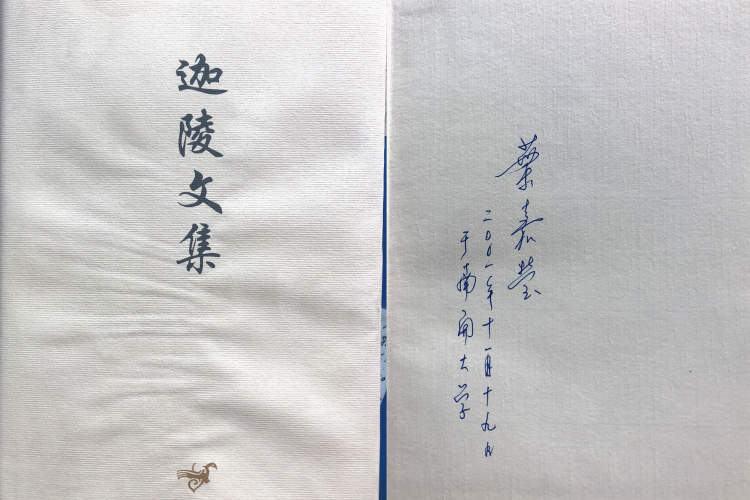 迦陵文集
葉嘉瑩
二〇〇一年十一月十九日
于南開大学